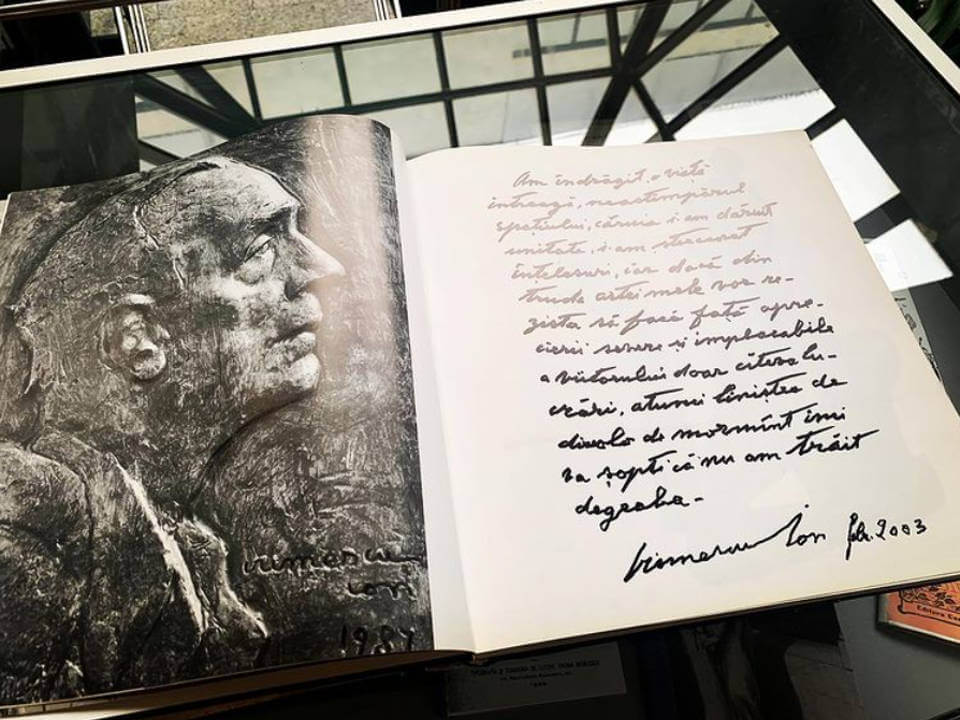 Irimescu
Ion
1984
Am îndrăgit, o viață
întreagă, neastîmpărul
spațiului, căruia i-am dăruit
unitate, i-am strecurat
înțelesuri, iar dacă din
truda artei mele vor re-
zista să facă față apre-
cierii severe și implacabile
a viitorului doar cîteva lu-
crări, atunci liniștea de
dincolo de mormînt îmi
va șopti că nu am trăit
degeaba.
Irimescu Ion feb. 2003
Editura